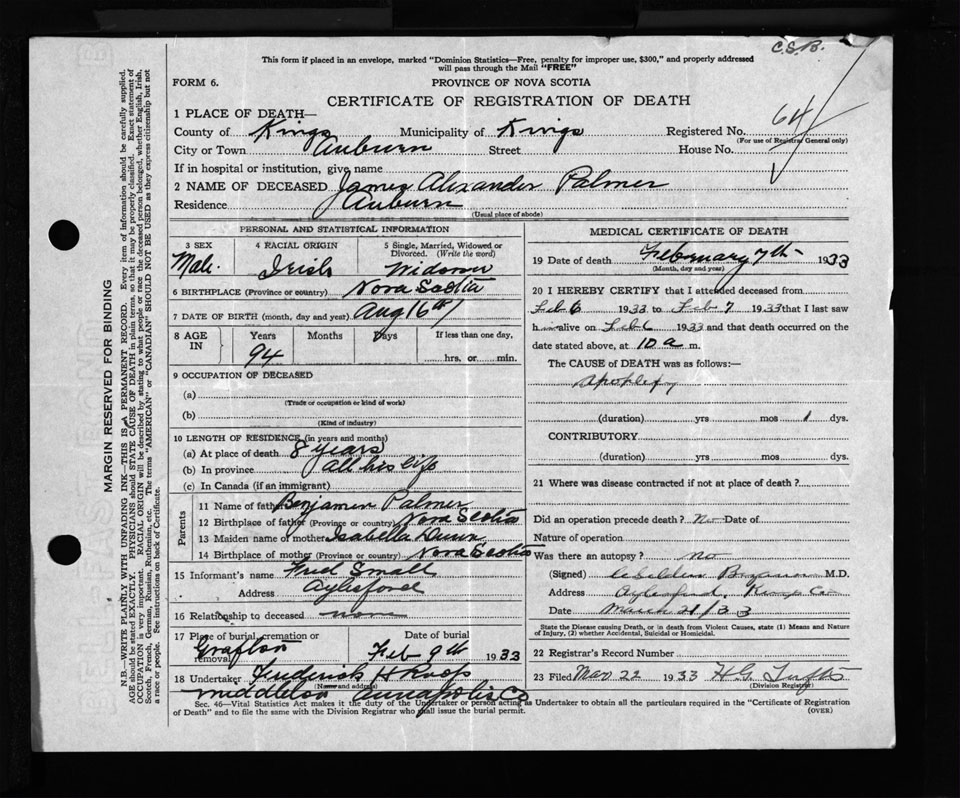 C.S.B.
This form if placed in an envelope, marked "Dominion Statistics—Free, penalty for improper use, $300," and properly addressed
will pass through the Mail "FREE"
FORM 6.
PROVINCE OF NOVA SCOTIA
CERTIFICATE OF REGISTRATION OF DEATH
1 PLACE OF DEATH—
County of Kings Municipality of Kings Registered No. 64
(For use of Registrar General only)
City or Town Auburn Street House No.
If in hospital or institution, give name
2 NAME OF DECEASED James Alexander Palmer
Residence Auburn
(Usual place of abode)
PERSONAL AND STATISTICAL INFORMATION
3 SEX 4 RACIAL ORIGIN 5 Single, Married, Widowed or Divorced. (Write the word)
Male Irish Widower
6 BIRTHPLACE (Province or country) Nova Scotia
7 DATE OF BIRTH (month, day and year) Aug 16th
8 AGE IN Years Months Days If less than one day,
94 hrs. or min.
9 OCCUPATION OF DECEASED
(a)
(Trade or occupation or kind of work)
(b)
(Kind of industry)
10 LENGTH OF RESIDENCE (in years and months)
(a) At place of death 8 years
(b) In province all his life
(c) In Canada (if an immigrant)
Parents
11 Name of father Benjamin Palmer
12 Birthplace of father (Province or country) Nova Scotia
13 Maiden name of mother Isabella Dunn
14 Birthplace of mother (Province or country) Nova Scotia
15 Informant's name Fred Small
Address Aylesford
16 Relationship to deceased none
17 Place of burial, cremation or removal Grafton Date of burial Feb 9th 1933
18 Undertaker Frederick H Roop
(Name and address)
Middleton Annapolis Co
MEDICAL CERTIFICATE OF DEATH
19 Date of death February 7th 1933
(Month, day and year)
20 I HEREBY CERTIFY that I attended deceased from
Feb 6 1933 to Feb 7 1933 that I last saw
him alive on Feb 6 1933 and that death occurred on the
date stated above, at 10 a m.
The CAUSE of DEATH was as follows:—
Apoplexy
(duration) yrs mos 1 dys.
CONTRIBUTORY
(duration) yrs. mos. dys.
21 Where was disease contracted if not at place of death?
Did an operation precede death? No Date of
Nature of operation
Was there an autopsy? no
(Signed) M.D.
Address Aylesford, Kings Co
Date March 21/33
State the Disease causing Death, or in death from Violent Causes, state (1) Means and Nature
of Injury, (2) whether Accidental, Suicidal or Homicidal.
22 Registrar's Record Number
23 Filed Mar 22 1933 H.G. Tufts
(Division Registrar)
Sec. 46—Vital Statistics Act makes it the duty of the Undertaker or person acting as Undertaker to obtain all the particulars required in the "Certificate of Registration
of Death" and to file the same with the Division Registrar who shall issue the burial permit.
(OVER)
MARGIN RESERVED FOR BINDING
N.B.—WRITE PLAINLY WITH UNFADING INK—THIS IS A PERMANENT RECORD. Every item of information should be carefully supplied.
AGE should be stated EXACTLY. PHYSICIANS should STATE CAUSE OF DEATH in plain terms, so that it may be properly classified. Exact statement of
OCCUPATION is very important. RACIAL ORIGIN will be described by stating to what people or race the deceased person belonged, whether English, Irish,
Scotch, French, German, Russian, Ruthenian, etc. The terms "AMERICAN" or "CANADIAN" SHOULD NOT BE USED as they express citizenship but not
a race or people. See instructions on back of Certificate.